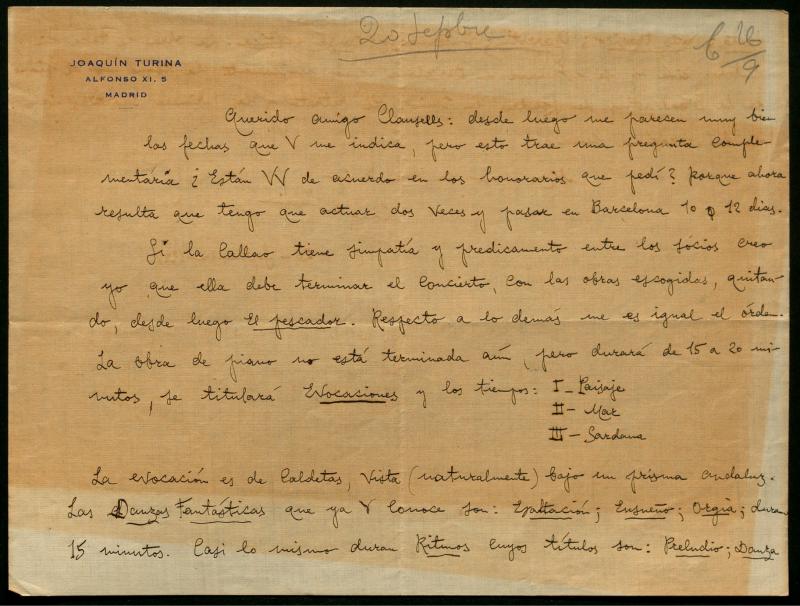 20 Sepbre
16/9
JOAQUÍN TURINA
ALFONSO XI, 5
MADRID
Querido amigo Clausells: desde luego me parecen muy bien
las fechas que V me indica, pero esto trae una pregunta comple-
mentaria ¿Están VV de acuerdo en los honorarios que pedí? Porque ahora
resulta que tengo que actuar dos veces y pasar en Barcelona 10 o 12 dias.
Si la Callao tiene simpatía y predicamento entre los sócios creo
yo que ella debe terminar el concierto, con las obras escogidas, quitan-
do, desde luego El pescador. Respecto a lo demás me es igual el órden.
La obra de piano no está terminada aún, pero durará de 15 a 20 mi-
nutos, se titulará Evocaciones y los tiempos: I - Paisaje
II - Mar
III - Sardana
La evocación es de Caldetas, vista (naturalmente) bajo un prisma andaluz.
Las Danzas Fantásticas que ya V conoce son: Exaltación; Ensueño; Orgía; duran
15 minutos. Casi lo mismo duran Ritmos cuyos títulos son: Preludio; Danza